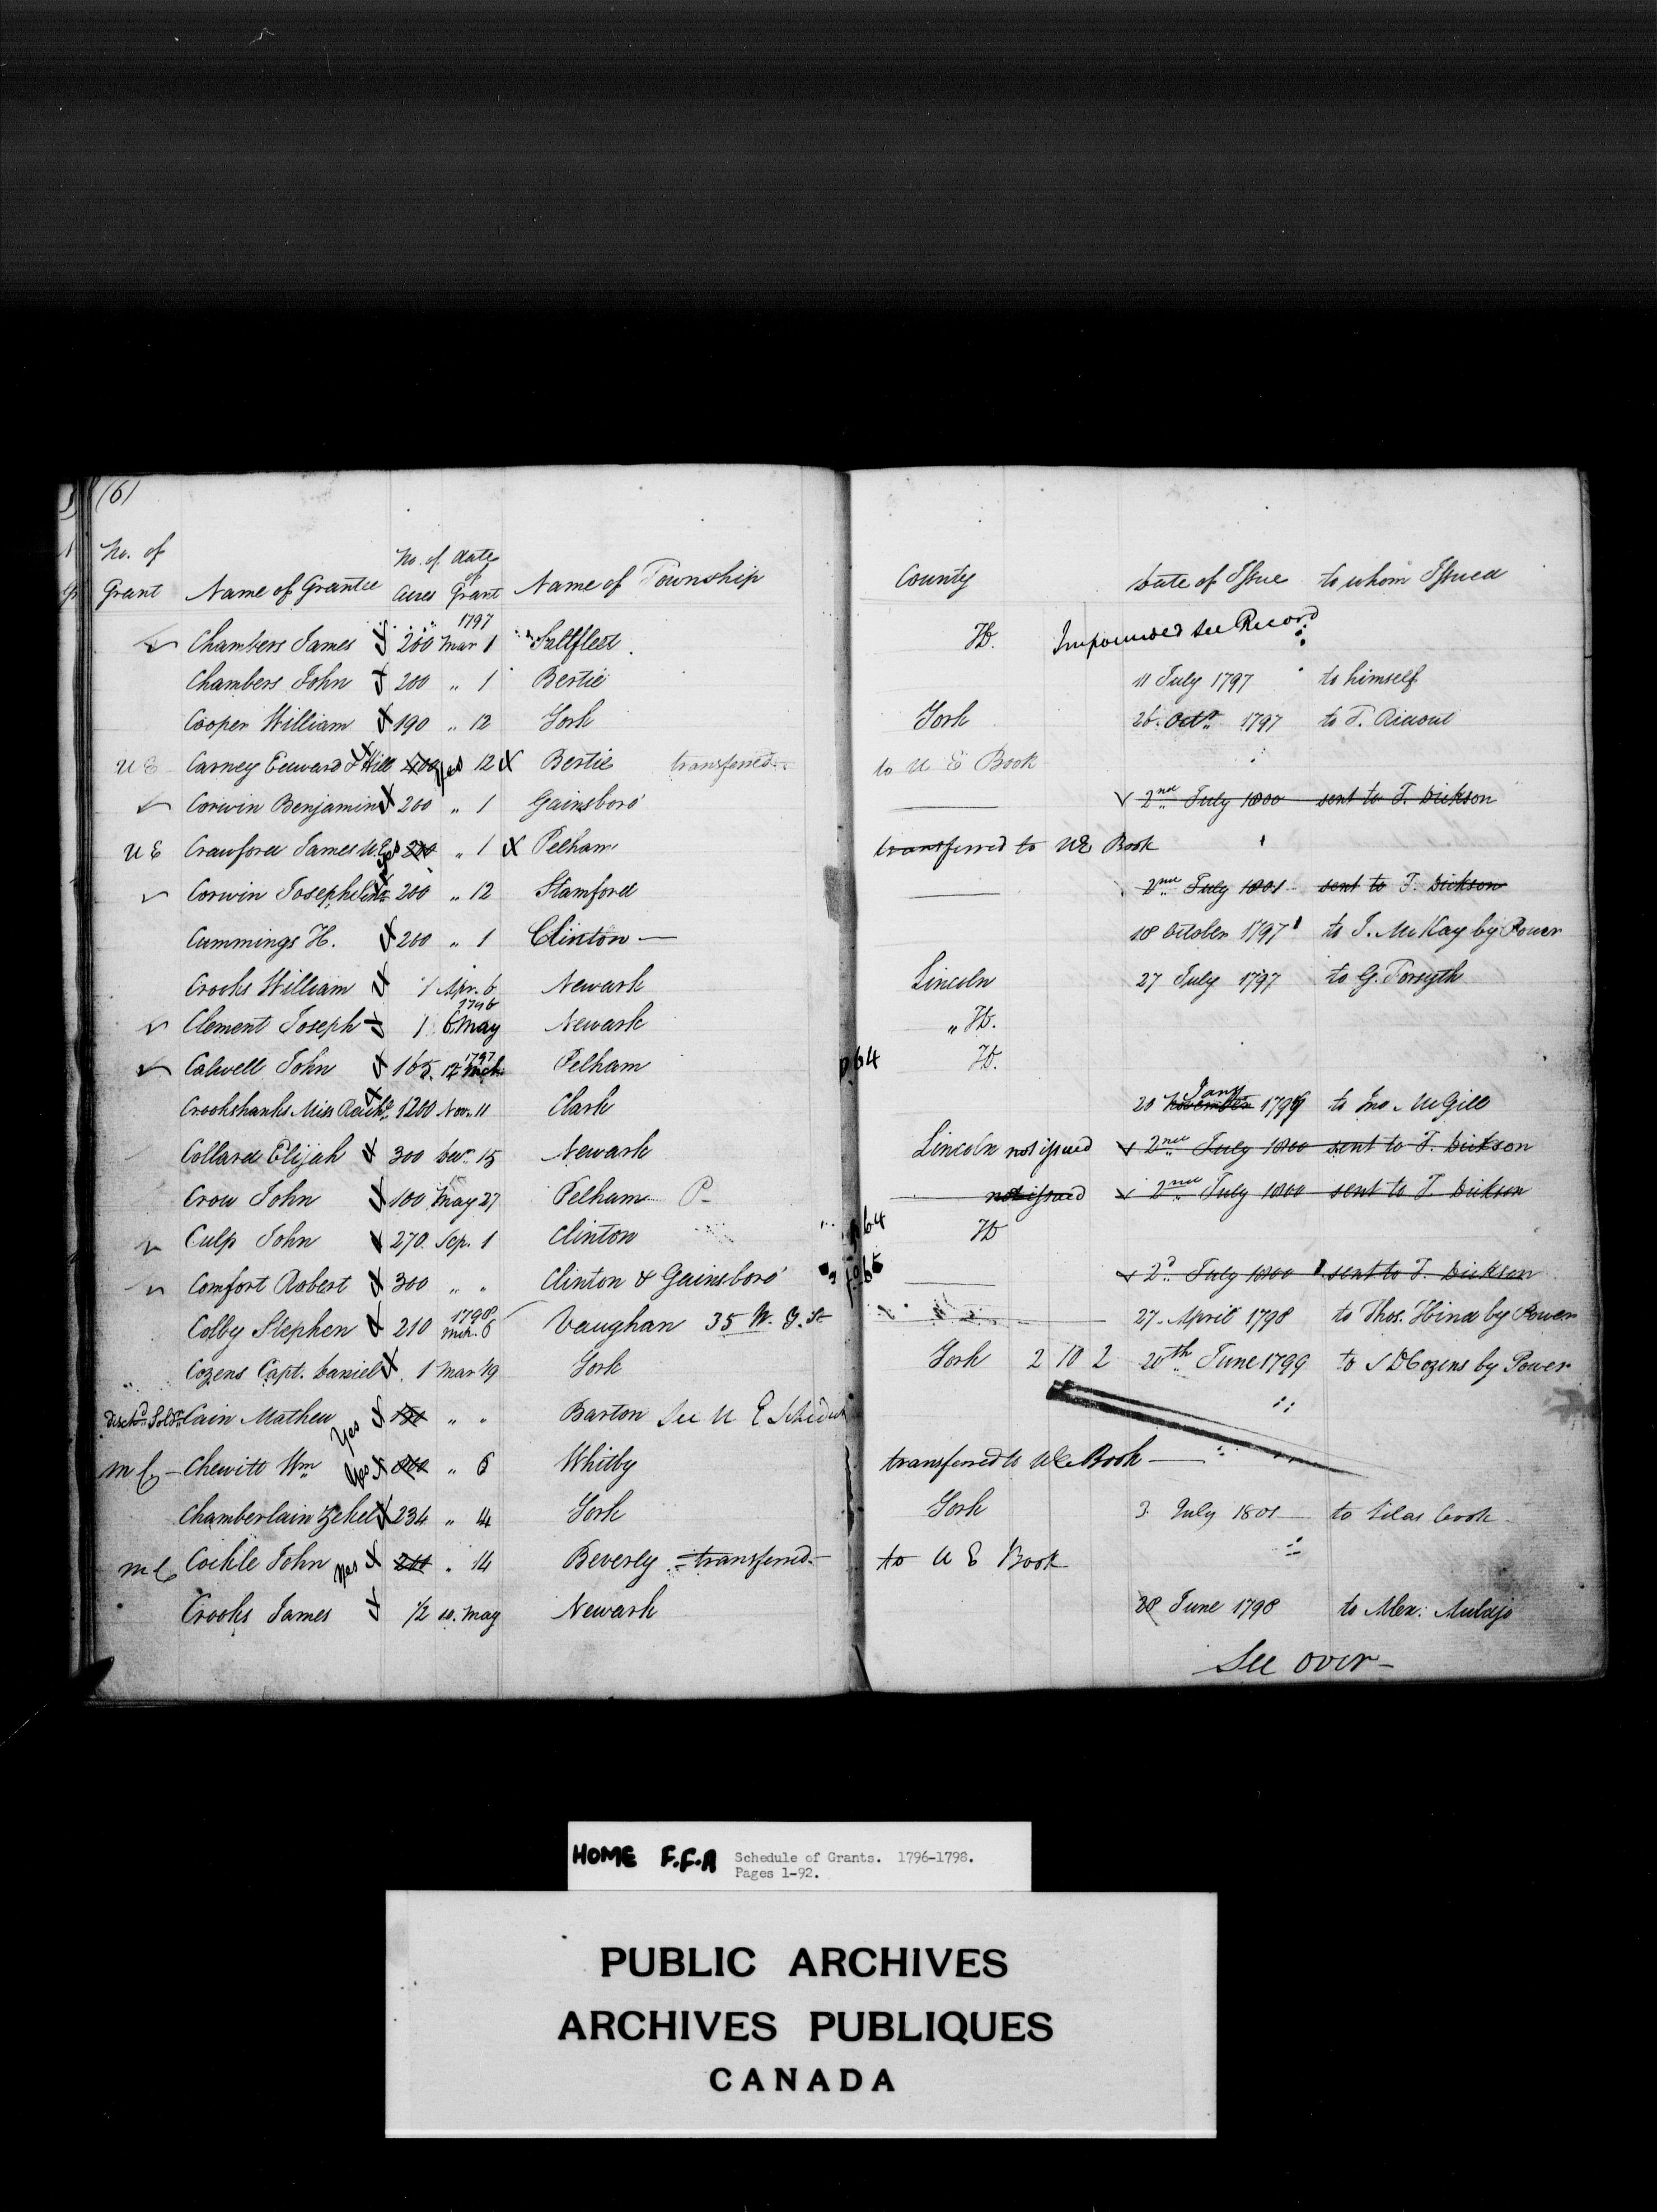 (6)
No. of Grant Name of Grantee No. of Acres date of Grant Name of Township County Date of Issue to whom Issued
1797
Chambers James 200 Mar 1 Saltfleet Impounded see Record
Chambers John 200 " 1 Bertie 11 July 1797 to himself
Cooper William 190 " 12 York York 26. Octr 1797 to T. Ridout
U E Carney Edward & Hill yes 12 X Bertie transferred to U E Book
Corwin Benjamin 200 " 1 Gainsboro' 2nd July 1800 sent to T. Dickson
U E Crawford James U.E. yes 200 " 1 X Pelham transferred to UE Book
Corwin Joseph 200 " 12 Stamford 2nd July 1801 sent to T. Dickson
Cummings H. 200 " 1 Clinton 18 October 1797 to J. McKay by Power
Crooks William 1 Apr. 6 Newark Lincoln 27 July 1797 to G. Forsyth
1796
Clement Joseph 1 6 May Newark "
1797
Calwell John 165. 12 Mch Pelham p64
Crookshanks Miss 1200 Nov. 11 Clark 20 November Jany 1799 to Jno. McGill
Collard Elijah 300 Decr. 15 Newark Lincoln not issued 2nd July 1800 sent to T. Dickson
Crow John 100 May 27 Pelham P- not issued 2nd July 1800 sent to T. Dickson
Culp John 270. Sep. 1 Clinton 64
Comfort Robert 300 " " Clinton & Gainsboro' 65 2d July 1800 sent to T. Dickson
1798
Colby Stephen 210 Mch. 6 Vaughan 35 W. Y. St 27. April 1798 to Thos. Hind by Power
Cozens Capt. Daniel 1 Mar 19 York York 2 10 2 20th June 1799 to S D Cozens by Power
Dischd Soldr Cain Mathew Yes " " Barton See U E Schedule
M C - Chewitt Wm Yes " 6 Whitby transferred to UE Book
Chamberlain Zekel 234 " 14 York York 3. July 1801 to Silas Cook
M C Cockle John Yes 200 " 14 Beverly - transferred - to U E Book
Crooks James 1/2 10. May Newark 28 June 1798 to Alex: Auldjo
See over -
HOME F.F.A Schedule of Grants. 1796-1798.
Pages 1-92.
PUBLIC ARCHIVES
ARCHIVES PUBLIQUES
CANADA